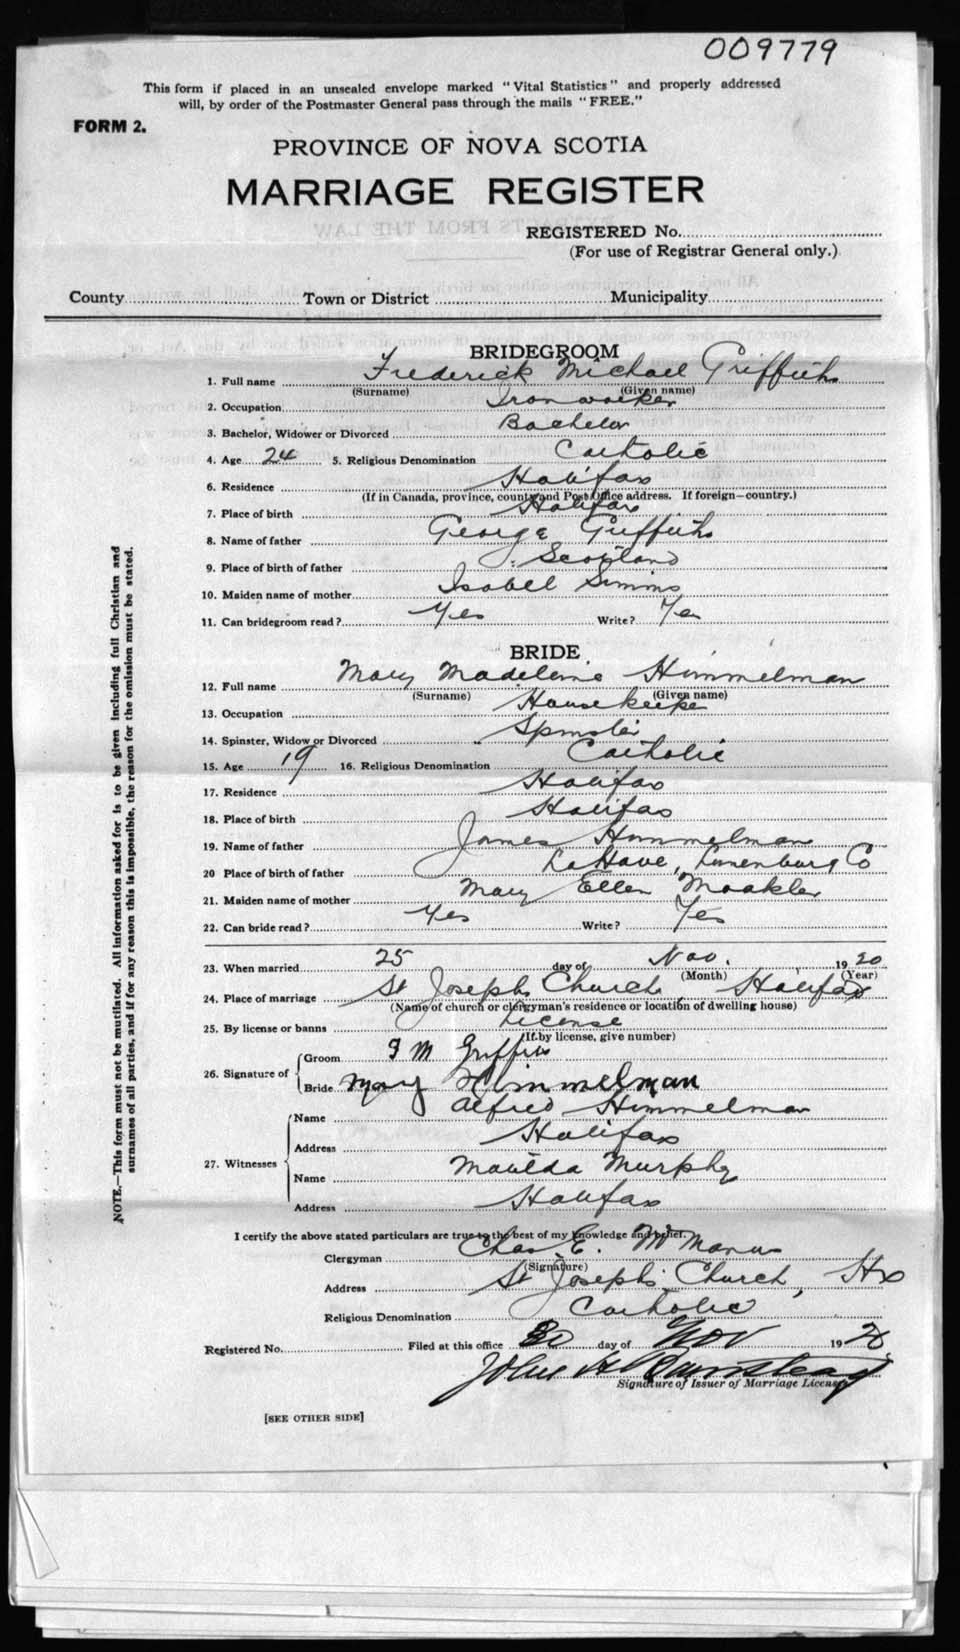 009779
This form if placed in an unsealed envelope marked "Vital Statistics" and properly addressed
will, by order of the Postmaster General pass through the mails "FREE."
FORM 2.
PROVINCE OF NOVA SCOTIA
MARRIAGE REGISTER
REGISTERED No.
(For use of Registrar General only.)
County Town or District Municipality
BRIDEGROOM
1. Full name Frederick Michael Griffiths
(Surname) (Given name)
2. Occupation Ironworker
3. Bachelor, Widower or Divorced Bachelor
4. Age 24 5. Religious Denomination Catholic
6. Residence Halifax
(If in Canada, province, county and Post Office address. If foreign—country.)
7. Place of birth Halifax
8. Name of father George Griffiths
9. Place of birth of father Scotland
10. Maiden name of mother Isabell Simms
11. Can bridegroom read? Yes Write? Yes
BRIDE
12. Full name Mary Madeleine Himmelman
(Surname) (Given name)
13. Occupation Housekeeper
14. Spinster, Widow or Divorced Spinster
15. Age 19 16. Religious Denomination Catholic
17. Residence Halifax
18. Place of birth Halifax
19. Name of father James Himmelman
20 Place of birth of father LaHave, Lunenburg Co
21. Maiden name of mother Mary Ellen Moakler
22. Can bride read? Yes Write? Yes
23. When married 25 day of Nov. 1920
(Month) (Year)
24. Place of marriage St Josephs Church, Halifax
(Name of church or clergyman's residence or location of dwelling house)
25. By license or banns License
(If by license, give number)
26. Signature of
Groom F M Griffiths
Bride Mary Himmelman
27. Witnesses
Name Alfred Himmelman
Address Halifax
Name Matilda Murphy
Address Halifax
I certify the above stated particulars are true to the best of my knowledge and belief.
Clergyman Chas E.
(Signature)
Address St Josephs Church, Hx
Religious Denomination Catholic
Registered No. Filed at this office 30 day of Nov 1920
John H
Signature of Issuer of Marriage License
[SEE OTHER SIDE]
NOTE.—This form must not be mutilated. All information asked for is to be given including full Christian and
surnames of all parties, and if for any reason this is impossible, the reason for the omission must be stated.